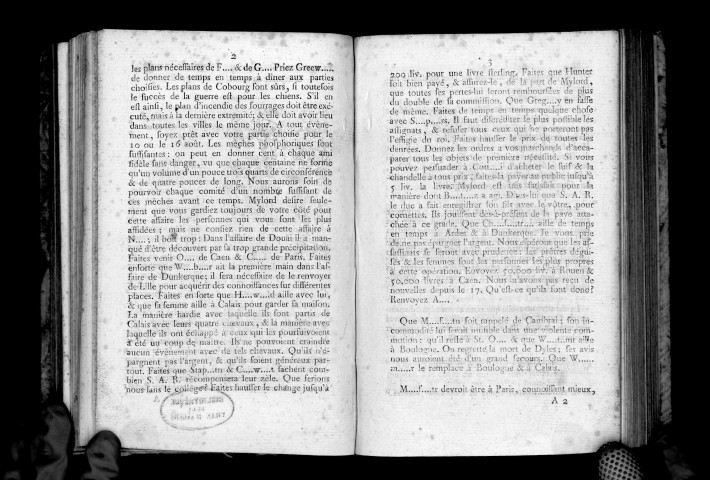 2
les plans nécessaires de F.... & de G.... Priez Greew....
de donner de temps en temps à dîner aux parties
choisies. Les plans de Cobourg sont sûrs, si toutefois
le succès de la guerre est pour les chiens. S'il en
est ainsi, le plan d'incendie des fourrages doit être exé-
cuté, mais à la dernière extrémité; & elle doit avoir lieu
dans toutes les villes le même jour. A tout évène-
ment, soyez prêt avec votre partie choisie pour le
10 ou le 16 août. Les mèches phosphoriques sont
suffisantes; on peut en donner cent à chaque ami
fidèle sans danger, vu que chaque centaine ne forme
qu'un volume d'un pouce trois quarts de circonférence
& de quatre pouces de long. Nous aurons soin de
pourvoir chaque comité d'un nombre suffisant de
ces mèches avant ce temps. Mylord desire seule-
ment que vous gardiez toujours de votre côté pour
cette affaire les personnes qui vous sont les plus
affidées; mais ne confiez rien de cette affaire à
N....; il boit trop: Dans l'affaire de Douai il a man-
qué d'être découvert par sa trop grande précipitation.
Faites venir O.... de Caen & C..... de Paris. Faites
ensorte que W...b...r ait la première main dans l'af-
faire de Dunkerque; il sera nécessaire de le renvoyer
de Lille pour acquérir des connoissances sur différentes
places. Faites en sorte que H....w....d aille avec lui,
& que sa femme aille à Calais pour garder sa maison.
La manière hardie avec laquelle ils sont partis de
Calais avec leurs quatre chevaux, & la manière avec
laquelle ils ont échappé à ceux qui les poursuivoient
a été un coup de maître. Ils ne pouvoient craindre
aucun évènement avec de tels chevaux. Qu'ils n'é-
pargnent pas l'argent, & qu'ils soient généreux par-
tout. Faites que Stap...tn & C...w....t sachent com-
bien S. A. R. récompensera leur zèle. Que ferions
nous sans le collège? Faites hausser le change jusqu'à
3
200 liv. pour une livre sterling. Faites que Hunter
soit bien payé, & assurez-le, de la part de Mylord,
que toutes ses pertes lui seront remboursées de plus
du double de sa commission. Que Greg....y en fasse
de même. Faites de temps en temps quelque chose
avec S....p...rs. Il faut discréditer le plus possible les
assignats, & refuser tous ceux qui ne porteront pas
l'effigie du roi. Faites hausser le prix de toutes les
denrées. Donnez les ordres à vos marchands d'acca-
parer tous les objets de première nécessité. Si vous
pouvez persuader à Cott....i d'acheter le suif & la
chandelle à tous prix; faites-la payer au public jusqu'à
5 liv. la livre. Mylord est très satisfait pour la
manière dont B......z a agi. Dites-lui que S. A. R.
le duc a fait enregistrer son fils avec le vôtre, pour
cornettes. Ils jouissent dès-à-présent de la paye atta-
chée à ce grade. Que Ch.....tr.... aille de temps
en temps à Ardes & à Dunkerque. Je vous prie
de ne pas épargner l'argent. Nous espérons que les as-
sassinats se feront avec prudence: les prêtres dégui-
sés & les femmes sont les personnes les plus propres
à cette opération. Envoyez 50,000 liv. à Rouen &
50,000 livres à Caen. Nous n'avons pas reçu de
nouvelles depuis le 17. Qu'est-ce qu'ils font donc?
Renvoyez A....
Que M...s....tn soit rappelé de Cambrai; son in-
commodité lui seroit nuisible dans une violente com-
motion: qu'il reste à St. O.... & que W....tmr aille
à Boulogne. On regrette la mort de Dyles; ses avis
nous auroient été d'un grand secours. Que W.....
m.....r le remplace à Boulogne & à Calais.
M....s....tr devroit être à Paris, connoissant mieux,
A 2